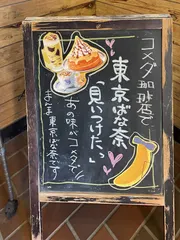 コメダ珈琲店で
東京ばな奈
見いつけたぃ
あの味がコメダで!!
まんま東京ばな奈です